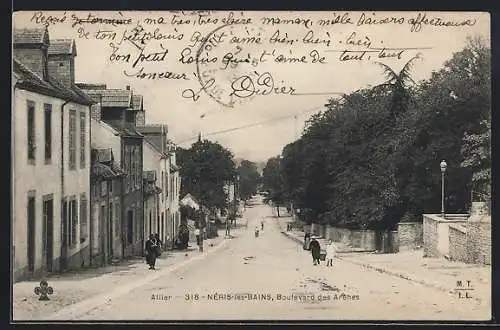 Reçois ma très chère maman, mille baisers affectueux
de ton petit Louis qui t'aime bien, bien, bien,
ton petit qui t'aime de tout, tout
son cœur
Didier
Allier - 318 - NÉRIS-les-BAINS, Boulevard des Arènes
M.T.
I.L.